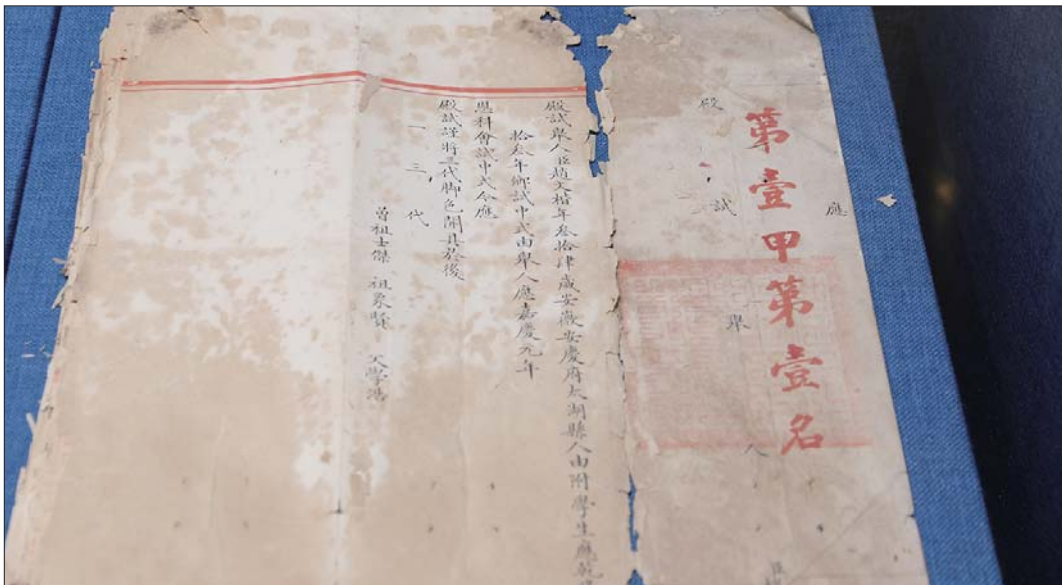 應
殿試舉人
第壹甲第壹名
應
殿試舉人臣趙文楷年叁拾肆歲安徽安慶府太湖縣人由附學生應乾
拾叁年鄉試中式由舉人應嘉慶元年
恩科會試中式今應
殿試謹將三代腳色開具於後
一三代
曾祖士傑 祖象賢 父學浩